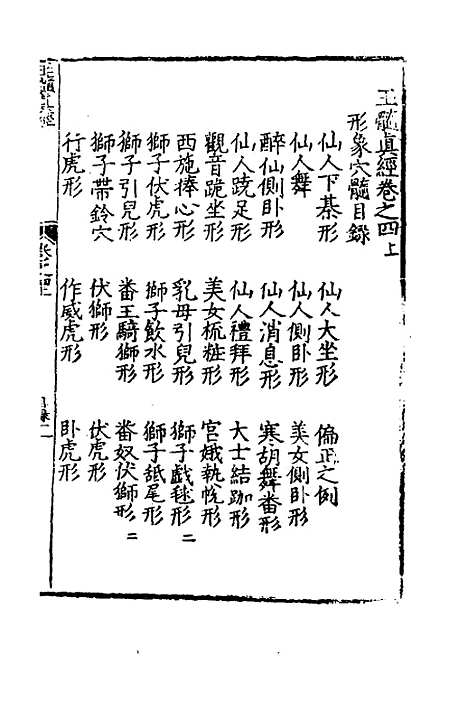 玉髓眞經卷之四上
形象穴髓目錄
仙人下棊形　仙人大坐形　偏正之例
仙人舞　仙人側卧形　美女側卧形
醉仙側卧形　仙人消息形　寒胡舞番形
仙人跷足形　仙人禮拜形　大士結跏形
觀音跪坐形　美女梳粧形　宮娥執帨形
西施捧心形　乳母引兒形　獅子戲毬形二
獅子伏虎形　獅子飲水形　獅子舐尾形
獅子引兒形　番王騎獅形　番奴伏獅形二
獅子帶鈴穴　伏獅形　伏虎形
行虎形　作威虎形　卧虎形